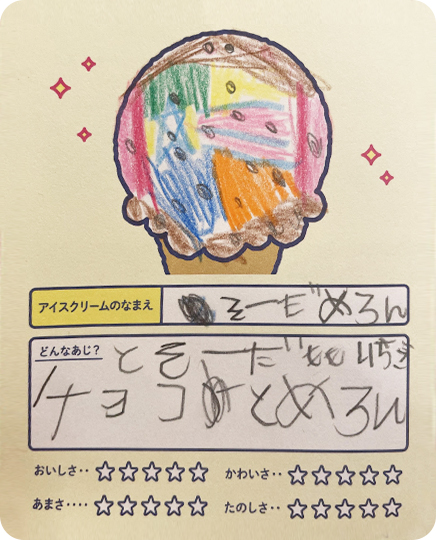 アイスクリームのなまえ そーだめろん
どんなあじ? とそーだももいちご
チョコとめろん
おいしさ‥ ☆☆☆☆☆ かわいさ‥ ☆☆☆☆☆
あまさ‥‥ ☆☆☆☆☆ たのしさ‥ ☆☆☆☆☆